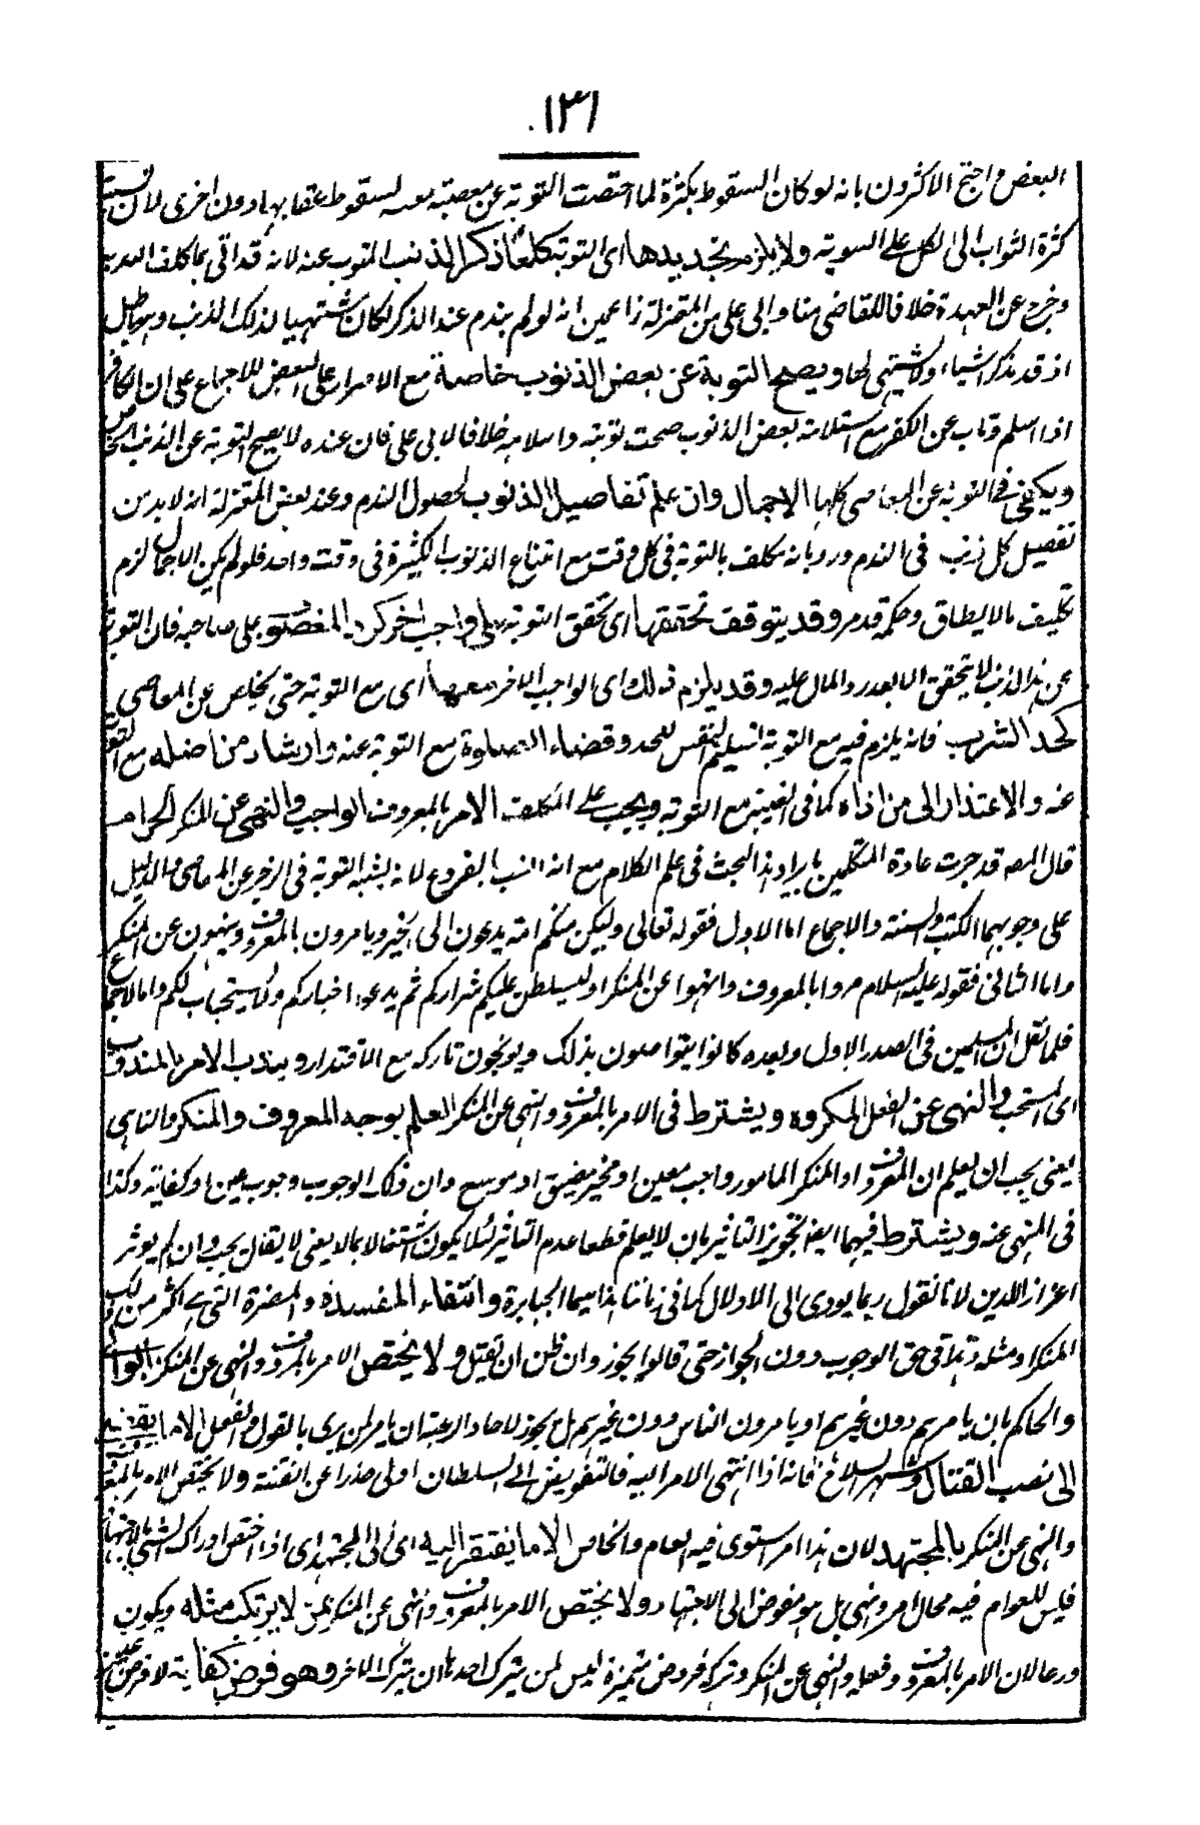 ١٣١
البعض واحتج الاكثرون بانه لو كان السقوط بكثرة لما اختصت التوبة عن معصية معينة لسقوط عقابها دون اخرى لان نسبة
كثرة الثواب الى الكل على السوية ولا يلزم تجديدها اى التوبة كلما ذكر الذنب المتوب عنه لانه قد اتى بما كلف العبد به
وخرج عن العهدة خلافا للقاضى منا وابى على من المعتزلة زاعمين انه لو لم يندم عند الذكر لكان مشتهيا لذلك الذنب وهو باطل
اذ قد يذكر اشياء ولا يشتهى لها ويصح التوبة عن بعض الذنوب خاصة مع الاصرار على البعض للاجماع على ان الكافر
اذا اسلم وتاب عن الكفر مع استدامة بعض الذنوب صحت توبته واسلامه خلافا لابى على فان عنده لا يصح التوبة عن الذنب
ويكفى فى التوبة عن المعاصى كلها الاجمال وان علم تفاصيل الذنوب لحصول الندم وعند بعض المعتزلة انه لا بد من
تفصيل كل ذنب فى الندم ورد بانه مكلف بالتوبة فى كل وقت مع امتناع الذنوب الكثيرة فى وقت واحد فلو لم يكن الاجمال لزم
تكليف مالا يطاق وحكمه قد مر وقد يتوقف تحققها اى تحقق التوبة على واجب اخر كرد المغصوب على صاحبه فان التوبة
عن هذا الذنب لا يتحقق الا بعد رد المال عليه وقد يلزم ذلك اى الواجب الاخر معها اى مع التوبة حتى يخلص عن المعاصى
كحد الشرب فانه يلزم فيه مع التوبة تسليم النفس للحد وقضاء الصلوة مع التوبة عنه وارشاد من اضله مع التوبة
عنه والاعتذار الى من اذاه كما فى الغيبة مع التوبة ويجب على المكلف الامر بالمعروف الواجب والنهى عن المنكر الحرام
قال المصه قد جرت عادة المتكلمين بايراد هذا البحث فى علم الكلام مع انه انسب بالفروع لانه يشبه التوبة فى الزجر عن المعاصى والدليل
على وجوبهما الكتب والسنة والاجماع اما الاول فقوله تعالى وليكن منكم امة يدعون الى الخير ويامرون بالمعروف وينهون عن المنكر
واما الثانى فقوله عليه السلام مروا بالمعروف وانهوا عن المنكر او ليسلطن عليكم شراركم ثم يدعوا خياركم ولا يستجاب لكم واما الاجماع
فلما نقل ان المسلمين فى الصدر الاول وبعده كانوا يتواصون بذلك ويوبخون تاركه مع الاقتدار ويندب الامر بالمندوب
اى المستحب والنهى عن الفعل المكروه ويشترط فى الامر بالمعروف والنهى عن المنكر العلم بوجه المعروف والمنكر والناهى
يعنى يجب ان يعلم ان المعروف او المنكر المامور واجب معين او مخير مضيق او موسع وان ذلك الوجوب وجوب عين او كفاية وكذا
فى المنهى عنه ويشترط فيهما ايضا تجويز التاثير بان لا يعلم قطعا عدم التاثير لئلا يكون اشتغالا بما لا يعنى لا يقال يجب وان لم يوثر
اعزازا للدين لانا نقول ربما يودى الى الاذلال كما فى زماننا هذا سيما الجبابرة وانتفاء المفسدة والمضرة التى هى اكثر من ذلك
المنكر او مثله وهذا فى حق الوجوب دون الجواز حتى قالوا يجوز وان ظن ان يقتل ولا يختص الامر بالمعروف والنهى عن المنكر بالولاة
والحاكم بان يامر هم دون غيرهم او يامرون الناس دون غيرهم بل يجوز لاحاد الرعية ان يامر لمن يرى بالقول والفعل الا ما يفضى
الى نصب القتال وشهر السلاح فانه اذا انتهى الامر اليه فالتفويض الى السلطان اولى حذرا عن الفتنة ولا يختص الامر بالمعروف
والنهى عن المنكر بالمجتهد لان هذا امر استوى فيه العام والخاص الا ما يفتقر اليه اى الى المجتهد اى اذا اختص ادراك الشئ بالاجتهاد
فليس للعوام فيه مجال امر ونهى بل هو مفوض الى الاجتهاد ولا يختص الامر بالمعروف والنهى عن المنكر بمن لا يرتكب مثله ويكون
ورعا لان الامر بالمعروف وفعله والنهى عن المنكر وتركه فروض متميزة ليس لمن يترك احدها ان يترك الاخر وهو فرض كفاية لا فرض عين